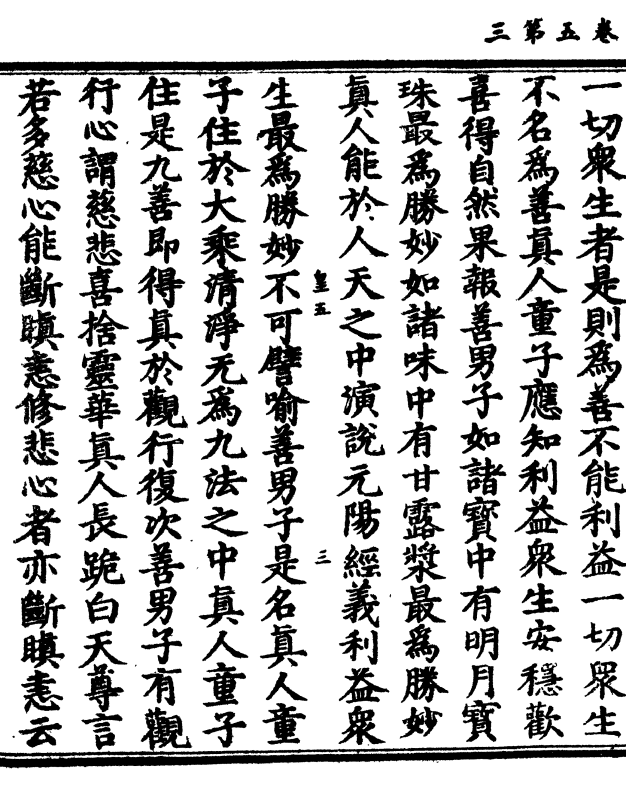 卷五第三
一切衆生者是則爲善不能利益一切衆生
不名爲善眞人童子應知利益衆生安穩歡
喜得自然果報善男子如諸寶中有明月寶
珠最爲勝妙如諸味中有甘露漿最爲勝妙
眞人能於人天之中演說元陽經義利益衆
皇五 三
生最爲勝妙不可譬喻善男子是名眞人童
子住於大乘清淨无爲九法之中眞人童子
住是九善即得眞於觀行復次善男子有觀
行心謂慈悲喜捨靈華眞人長跪白天尊言
若多慈心能斷瞋恚修悲心者亦斷瞋恚云